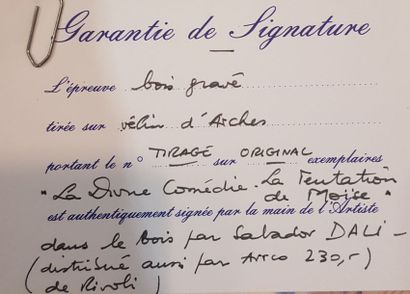 Garantie de Signature
L'épreuve bois gravé
tirée sur vélin d'Arches
portant le n° TIRAGE sur ORIGINAL exemplaires
"La Divine Comédie. La Tentation
de Moïse"
est authentiquement signée par la main de l'Artiste
dans le bois par Salvador DALI -
(distribué aussi par Arrco 230,-)
de Rivoli)